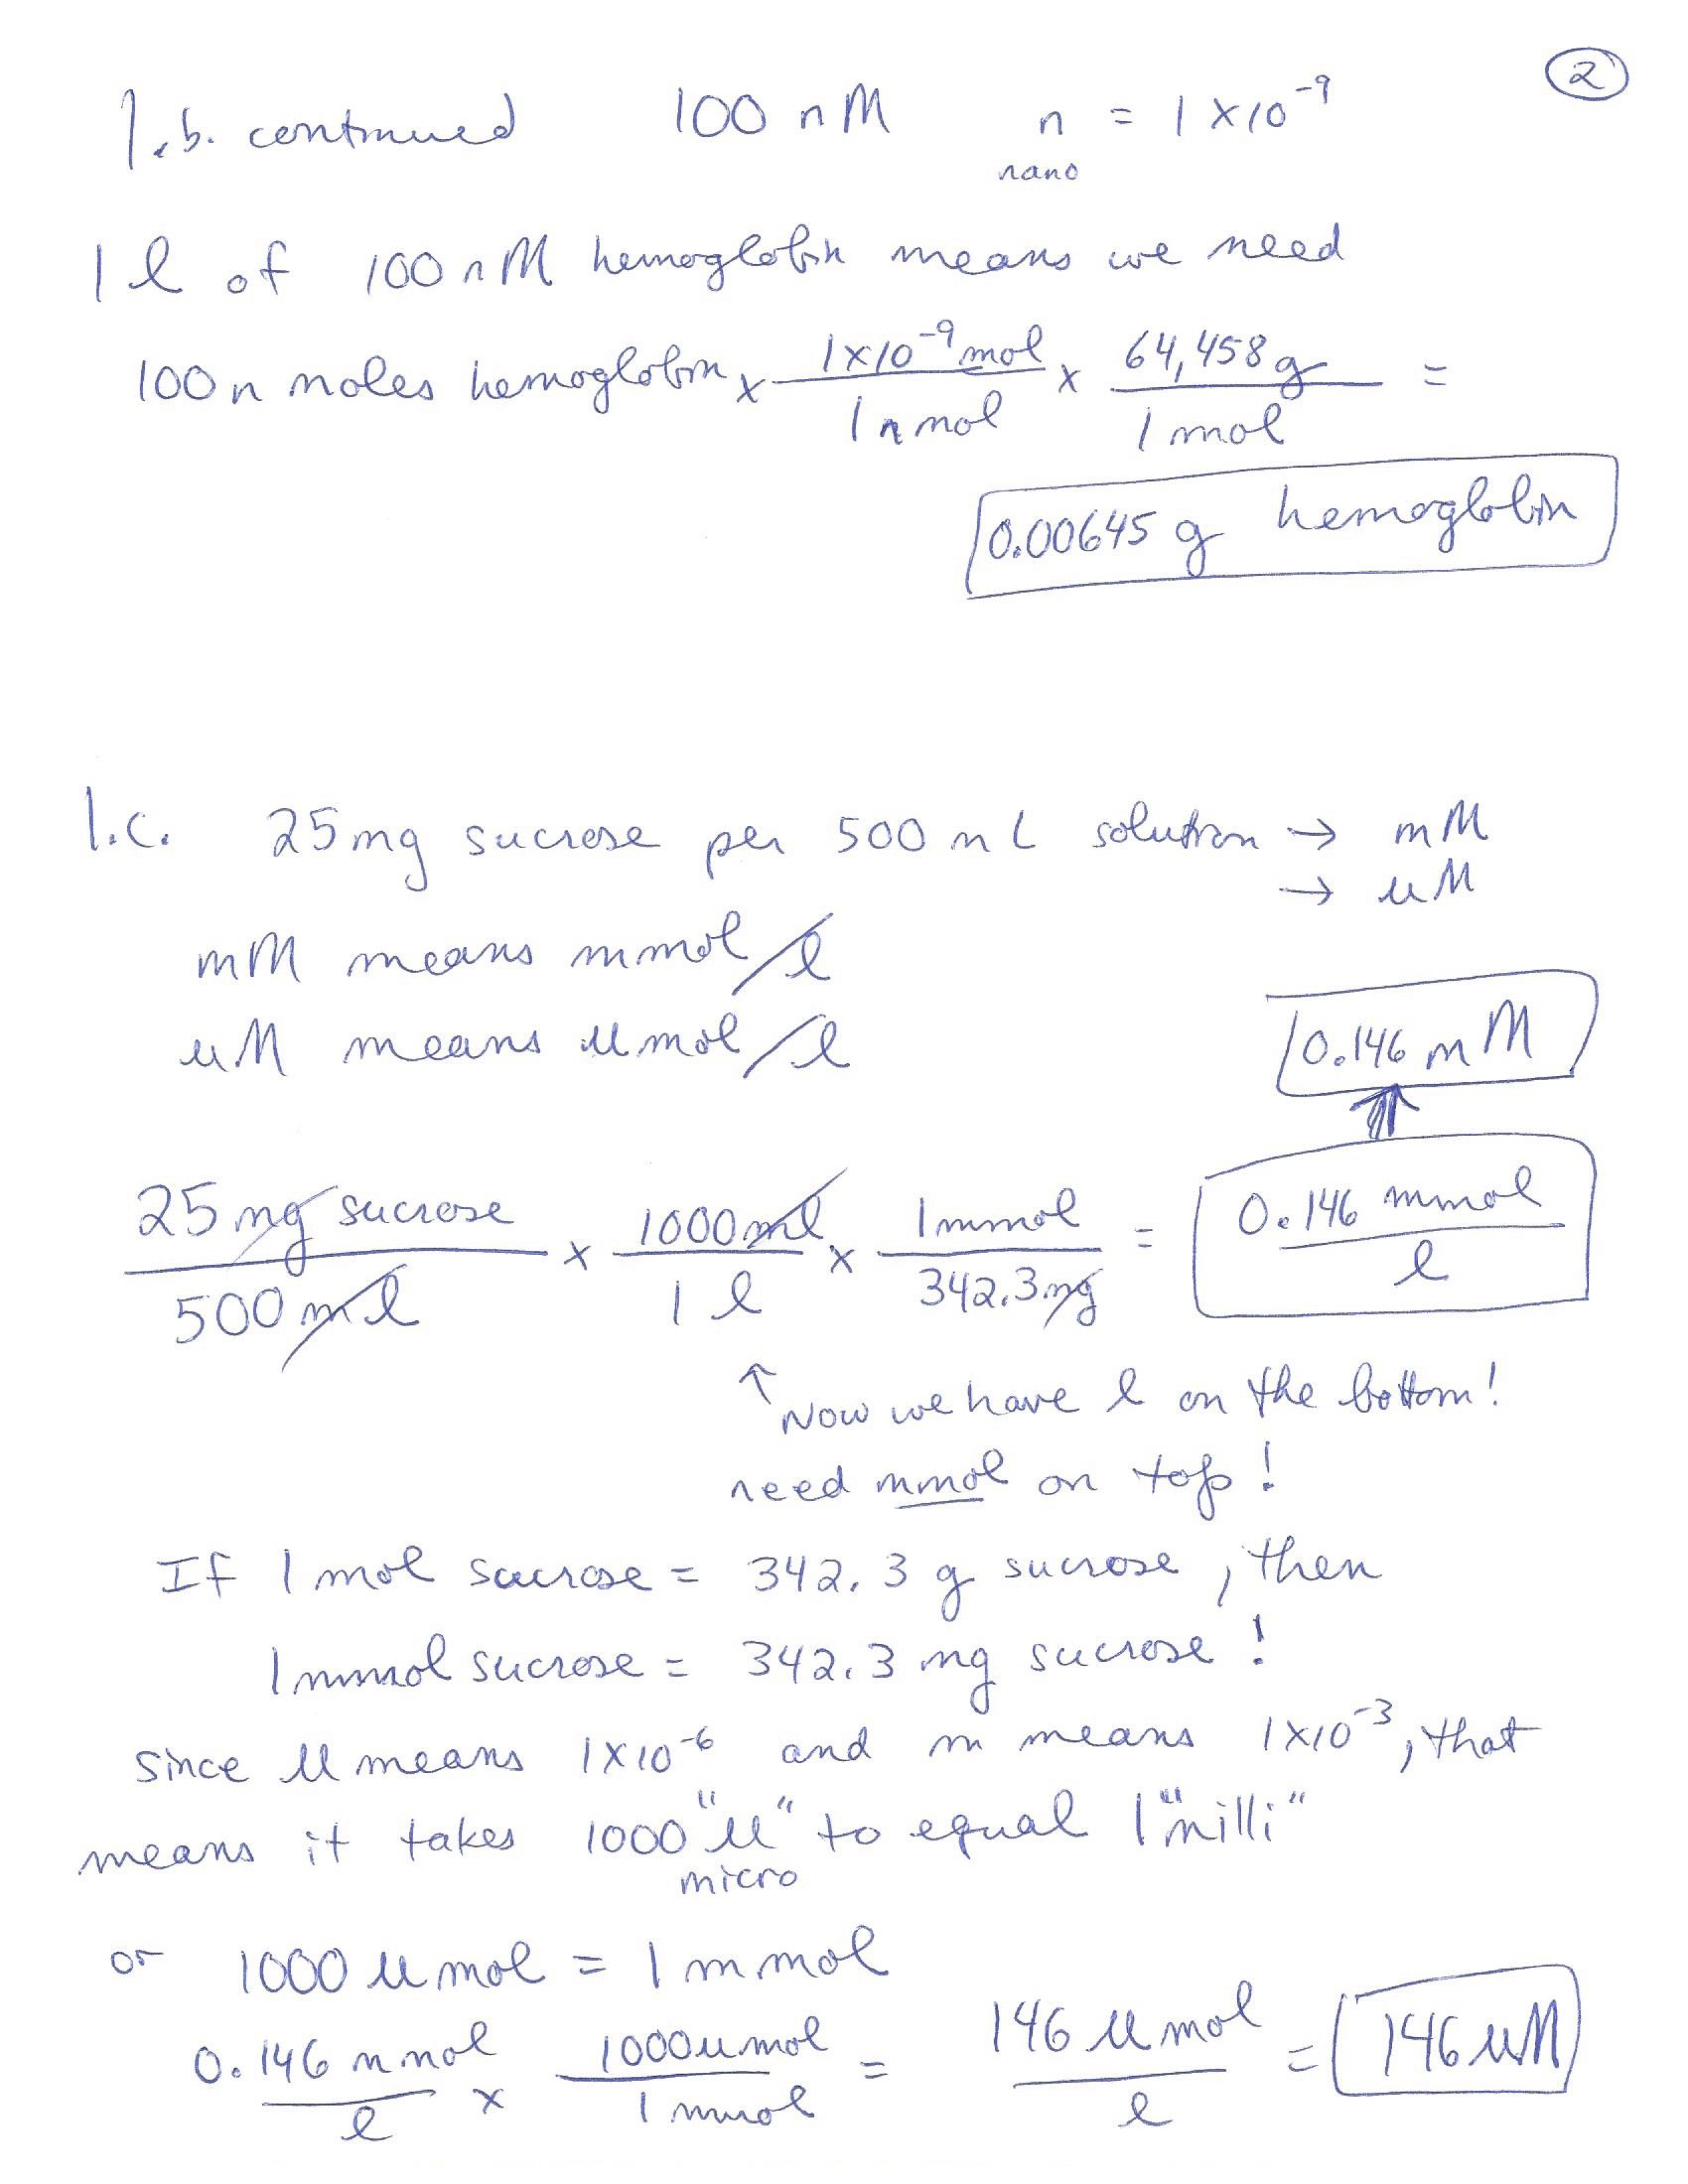 2
1.b. continued 100 nM n = 1 x 10⁻⁹
nano
1 l of 100 nM hemoglobin means we need
100 n moles hemoglobin x 1x10⁻⁹ mol / 1 n mol x 64,458 g / 1 mol =
0.00645 g hemoglobin
1.c. 25 mg sucrose per 500 mL solution → mM
→ uM
mM means mmol/l
uM means umol/l
0.146 mM
25 mg sucrose / 500 ml x 1000 ml / 1 l x 1 mmol / 342.3 mg = 0.146 mmol / l
↑ Now we have l on the bottom!
need mmol on top!
If 1 mol sucrose = 342.3 g sucrose, then
1 mmol sucrose = 342.3 mg sucrose!
since u means 1x10⁻⁶ and m means 1x10⁻³, that
means it takes 1000 "u" to equal 1 "milli"
micro
or 1000 u mol = 1 m mol
0.146 mmol / l x 1000 umol / 1 mmol = 146 u mol / l = 146 uM